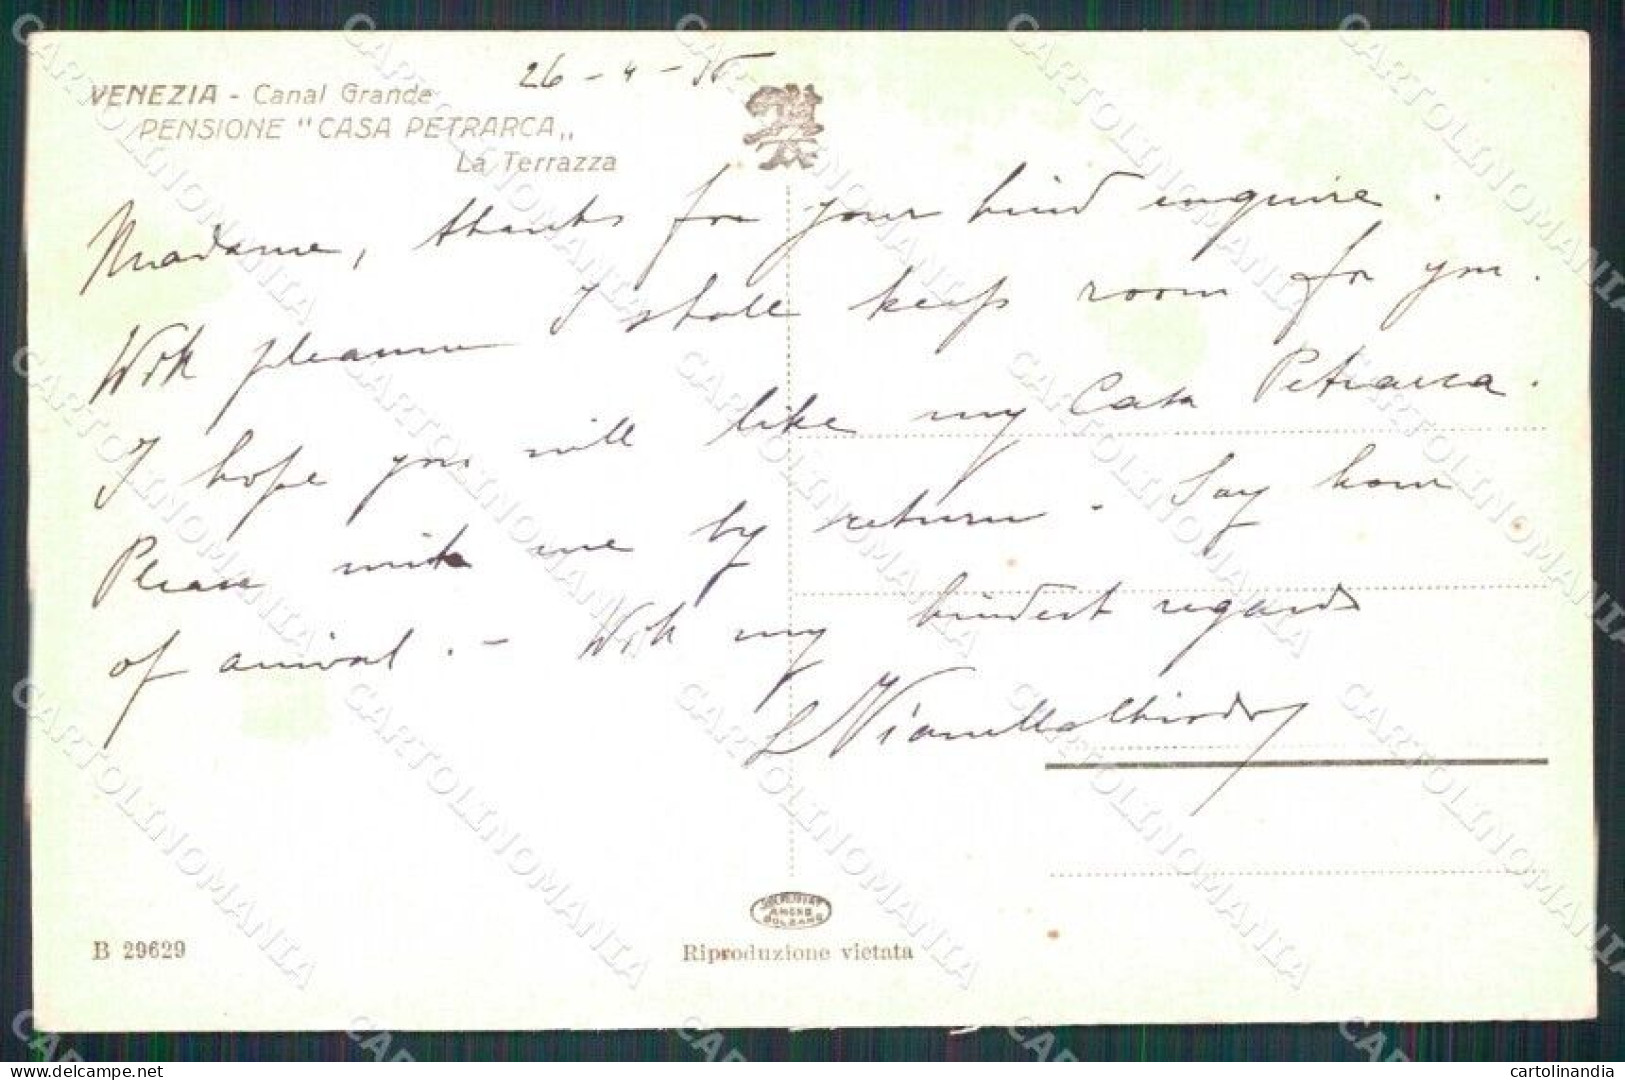 26 - 4 - 35
VENEZIA - Canal Grande
PENSIONE "CASA PETRARCA„
La Terrazza
Madame, thanks for your kind enquire.
With pleasure I shall keep room for you.
I hope you will like my Casa Petrarca.
Please write me by return. Say hour
of arrival. - With my kindest regards
B 29629
BOLZANO
Riproduzione vietata
CARTOLINOMANIA
cartolinandia